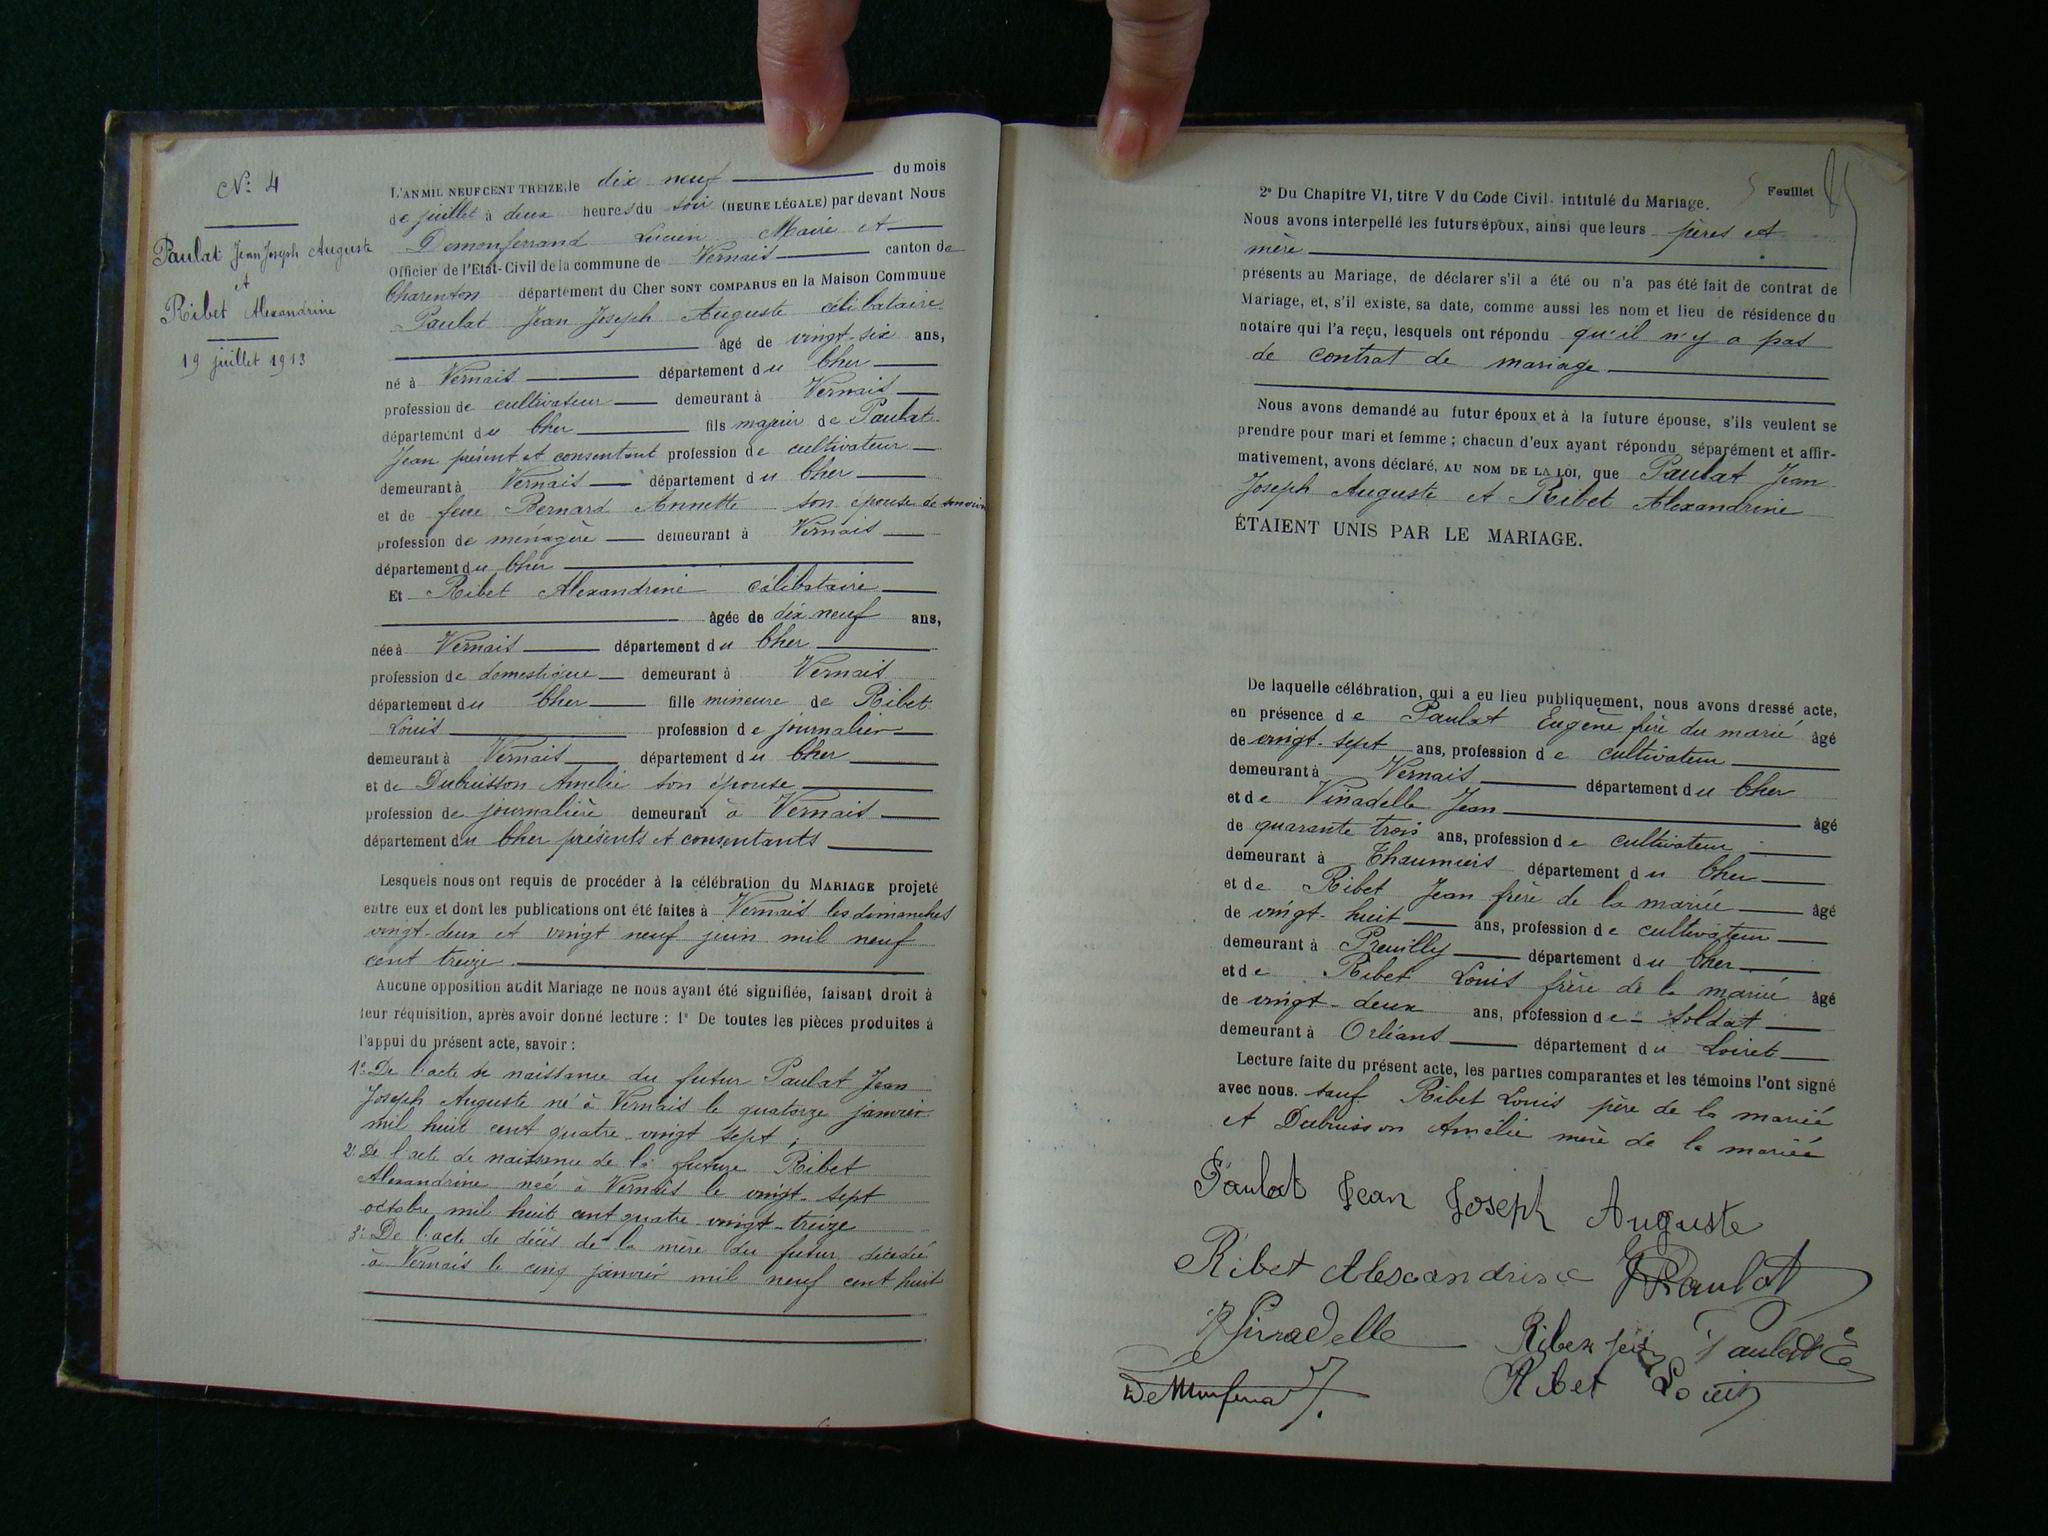 N° 4
Paulat Jean Joseph Auguste
et
Ribet Alexandrine
19 juillet 1913
L'AN MIL NEUF CENT TREIZE, le dix neuf du mois
de juillet à deux heures du soir (HEURE LÉGALE) par devant Nous
Demonferrand Lucien Maire et
Officier de l'Etat-Civil de la commune de Vernais canton de
Charenton département du Cher SONT COMPARUS en la Maison Commune
Paulat Jean Joseph Auguste célibataire
âgé de vingt-six ans,
né à Vernais département du Cher
profession de cultivateur demeurant à Vernais
département du Cher fils majeur de Paulat
Jean présent et consentant profession de cultivateur
demeurant à Vernais département du Cher
et de feue Bernard Annette son épouse de son vivant
profession de ménagère demeurant à Vernais
département du Cher
Et Ribet Alexandrine célibataire
âgée de dix neuf ans,
née à Vernais département du Cher
profession de domestique demeurant à Vernais
département du Cher fille mineure de Ribet
Louis profession de journalier
demeurant à Vernais département du Cher
et de Dubuisson Amélie son épouse
profession de journalière demeurant à Vernais
département du Cher présents et consentants
Lesquels nous ont requis de procéder à la célébration du MARIAGE projeté
entre eux et dont les publications ont été faites à Vernais les dimanches
vingt-deux et vingt neuf juin mil neuf
cent treize.
Aucune opposition audit Mariage ne nous ayant été signifiée, faisant droit à
leur réquisition, après avoir donné lecture : 1° De toutes les pièces produites à
l'appui du présent acte, savoir :
1° De l'acte de naissance du futur Paulat Jean
Joseph Auguste né à Vernais le quatorze janvier
mil huit cent quatre-vingt sept ;
2° De l'acte de naissance de la future Ribet
Alexandrine née à Vernais le vingt-sept
octobre mil huit cent quatre-vingt-treize
3° De l'acte de décès de la mère du futur décédée
à Vernais le cinq janvier mil neuf cent huit
Feuillet
2° Du Chapitre VI, titre V du Code Civil intitulé du Mariage.
Nous avons interpellé les futurs époux, ainsi que leurs pères et
mère
présents au Mariage, de déclarer s'il a été ou n'a pas été fait de contrat de
Mariage, et, s'il existe, sa date, comme aussi les nom et lieu de résidence du
notaire qui l'a reçu, lesquels ont répondu qu'il n'y a pas
de contrat de mariage.
Nous avons demandé au futur époux et à la future épouse, s'ils veulent se
prendre pour mari et femme ; chacun d'eux ayant répondu séparément et affir-
mativement, avons déclaré, AU NOM DE LA LOI, que Paulat Jean
Joseph Auguste et Ribet Alexandrine
ÉTAIENT UNIS PAR LE MARIAGE.
De laquelle célébration, qui a eu lieu publiquement, nous avons dressé acte,
en présence de Paulat Eugène frère du marié âgé
de vingt-sept ans, profession de cultivateur
demeurant à Vernais département du Cher
et de Viradelle Jean âgé
de quarante trois ans, profession de cultivateur
demeurant à Thaumiers département du Cher
et de Ribet Jean frère de la mariée âgé
de vingt-huit ans, profession de cultivateur
demeurant à Preuilly département du Cher
et de Ribet Louis frère de la mariée âgé
de vingt-deux ans, profession de soldat
demeurant à Orléans département du Loiret
Lecture faite du présent acte, les parties comparantes et les témoins l'ont signé
avec nous. sauf Ribet Louis père de la mariée
et Dubuisson Amélie mère de la mariée
Paulat Jean Joseph Auguste
Ribet Alexandrine Paulat
Viradelle Paulat E
Ribet Louis